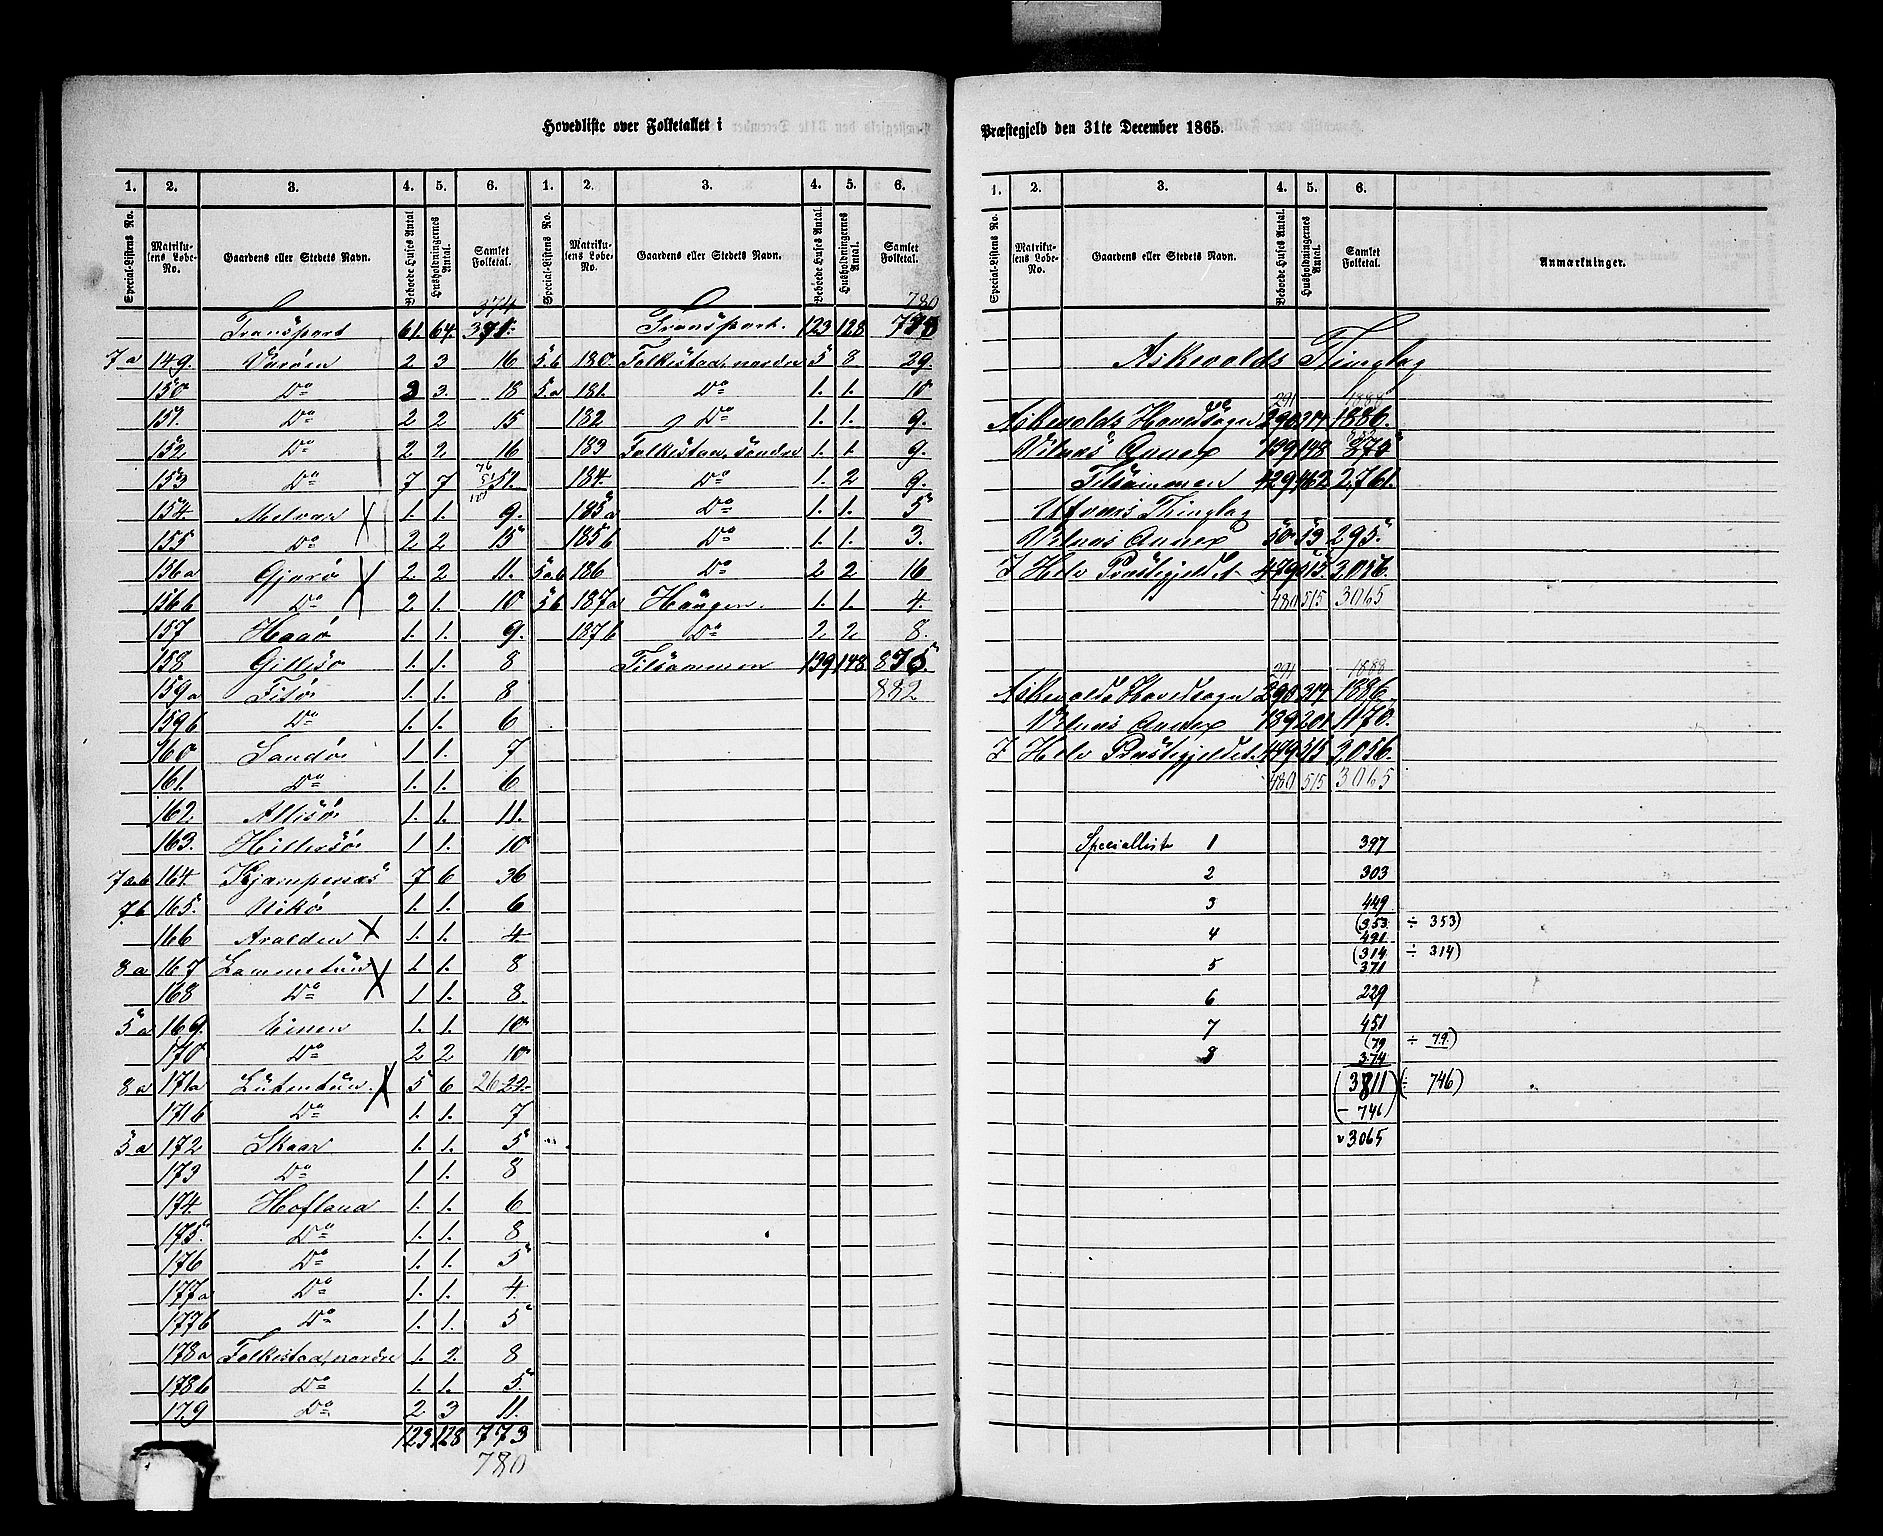 Hovedliste over Folketallet i
1. 2. 3. 4. 5. 6. 1. 2. 3. 4. 5. 6.
Special-Listens No. Matrikulens Løbe-No. Gaardens eller Stedets Navn. Beboede Huses Antal Husholdningernes Antal. Samlet Folketal. Special-Listens No. Matrikulens Løbe-No. Gaardens eller Stedets Navn. Beboede Huses Antal. Husholdningernes Antal. Samlet Folketal.
374 780
Transport 61. 64. 371. Transport. 123 128 773
7a 149. Værøen 2. 3 16 5.b 180. Folkestad, nordre 5 8 29.
150 Do 3 3. 18 5.a 181. Do 1. 1. 10
151. Do 2 2 15 182 Do 1. 1. 9.
152 Do 2 2. 16 183 Folkestad, søndre 1. 1. 9.
153 Do 7 7 51. 184. Do 1. 2 9.
154. Melvær X 1. 1. 9. 185a Do 1. 1. 5
155 Do 2 2 15 185b Do 1. 1. 3.
156a Gjærø X 2. 2 11. 5.a.b 186 Do 2 2 16
156b Do 2. 1. 10 5.b 187a Haugen. 1. 1. 4.
157 Haaø 1. 1. 9. 187b Do 2. 2. 8.
158 Gillesø 1. 1. 8 Tilsammen 139 148 875
159a Tisø 1. 1. 8 882
159b Do 1. 1. 6
160 Sandø 1. 1. 7
161. Do 1. 1. 6
162. Allisø 1. 1. 11.
163. Hillersø 1. 1. 10
7a.b 164. Kjempenæs 7 6 36
7.b 165. Nikø 1. 1. 6
166 Aralden X 1. 1. 4.
8a 167 Lammetun X 1. 1. 8
168 Do 1 1. 8.
5a 169. Eissen 1. 1. 10
170 Do 2 2 10
8a 171a Lutentun. X 5 6 26 22.
171b Do 1. 1. 7
5.a 172 Skaar 1. 1. 5
173 Do 1 1. 8
174. Hofland 1. 1. 6
175. Do 1. 1. 8
176 Do 1. 1. 5
177a Do 1. 1. 4.
177b Do 1. 1. 5
178a Folkestad, nordre 1. 2. 8
178b Do 1. 1. 5
179 Do 2 3 11.
123 128 773
780
Præstegjeld den 31te December 1865.
1. 2. 3. 4. 5. 6.
Special-Listens No. Matrikulens Løbe-No. Gaardens eller Stedets Navn. Beboede Huses Antal. Husholdningernes Antal. Samlet Folketal. Anmærkninger.
Askevolds Thinglag
291 1888
Askevolds Hovedsogn 290 314 1886.
Vilnæs Annex 139 148 875
Tilsammen 429 462 2,761.
Utværs Thinglag
Vilnæs Annex 50 53 295.
I Hele Præstegjeldet 479 515. 3,056.
480 515 3065
291 1888
Askevolds Hovedsogn 290 314 1886.
Vilnæs Annex 189 201. 1170.
I Hele Præstegjeldet. 479 515 3,056.
480 515 3065
Speciallist 1 397
2 303
3 449
4 (353 ÷ 353)
491
5 (314 ÷ 314)
371
6 229
7 451
(79 ÷ 79)
8 374
(3811 (÷ 746)
- 746)
3065